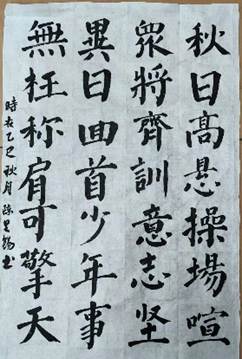 秋日高悬操場喧
眾將齊訓意志坚
異日回首少年事
無枉称肩可擎天
時在乙巳秋月
书